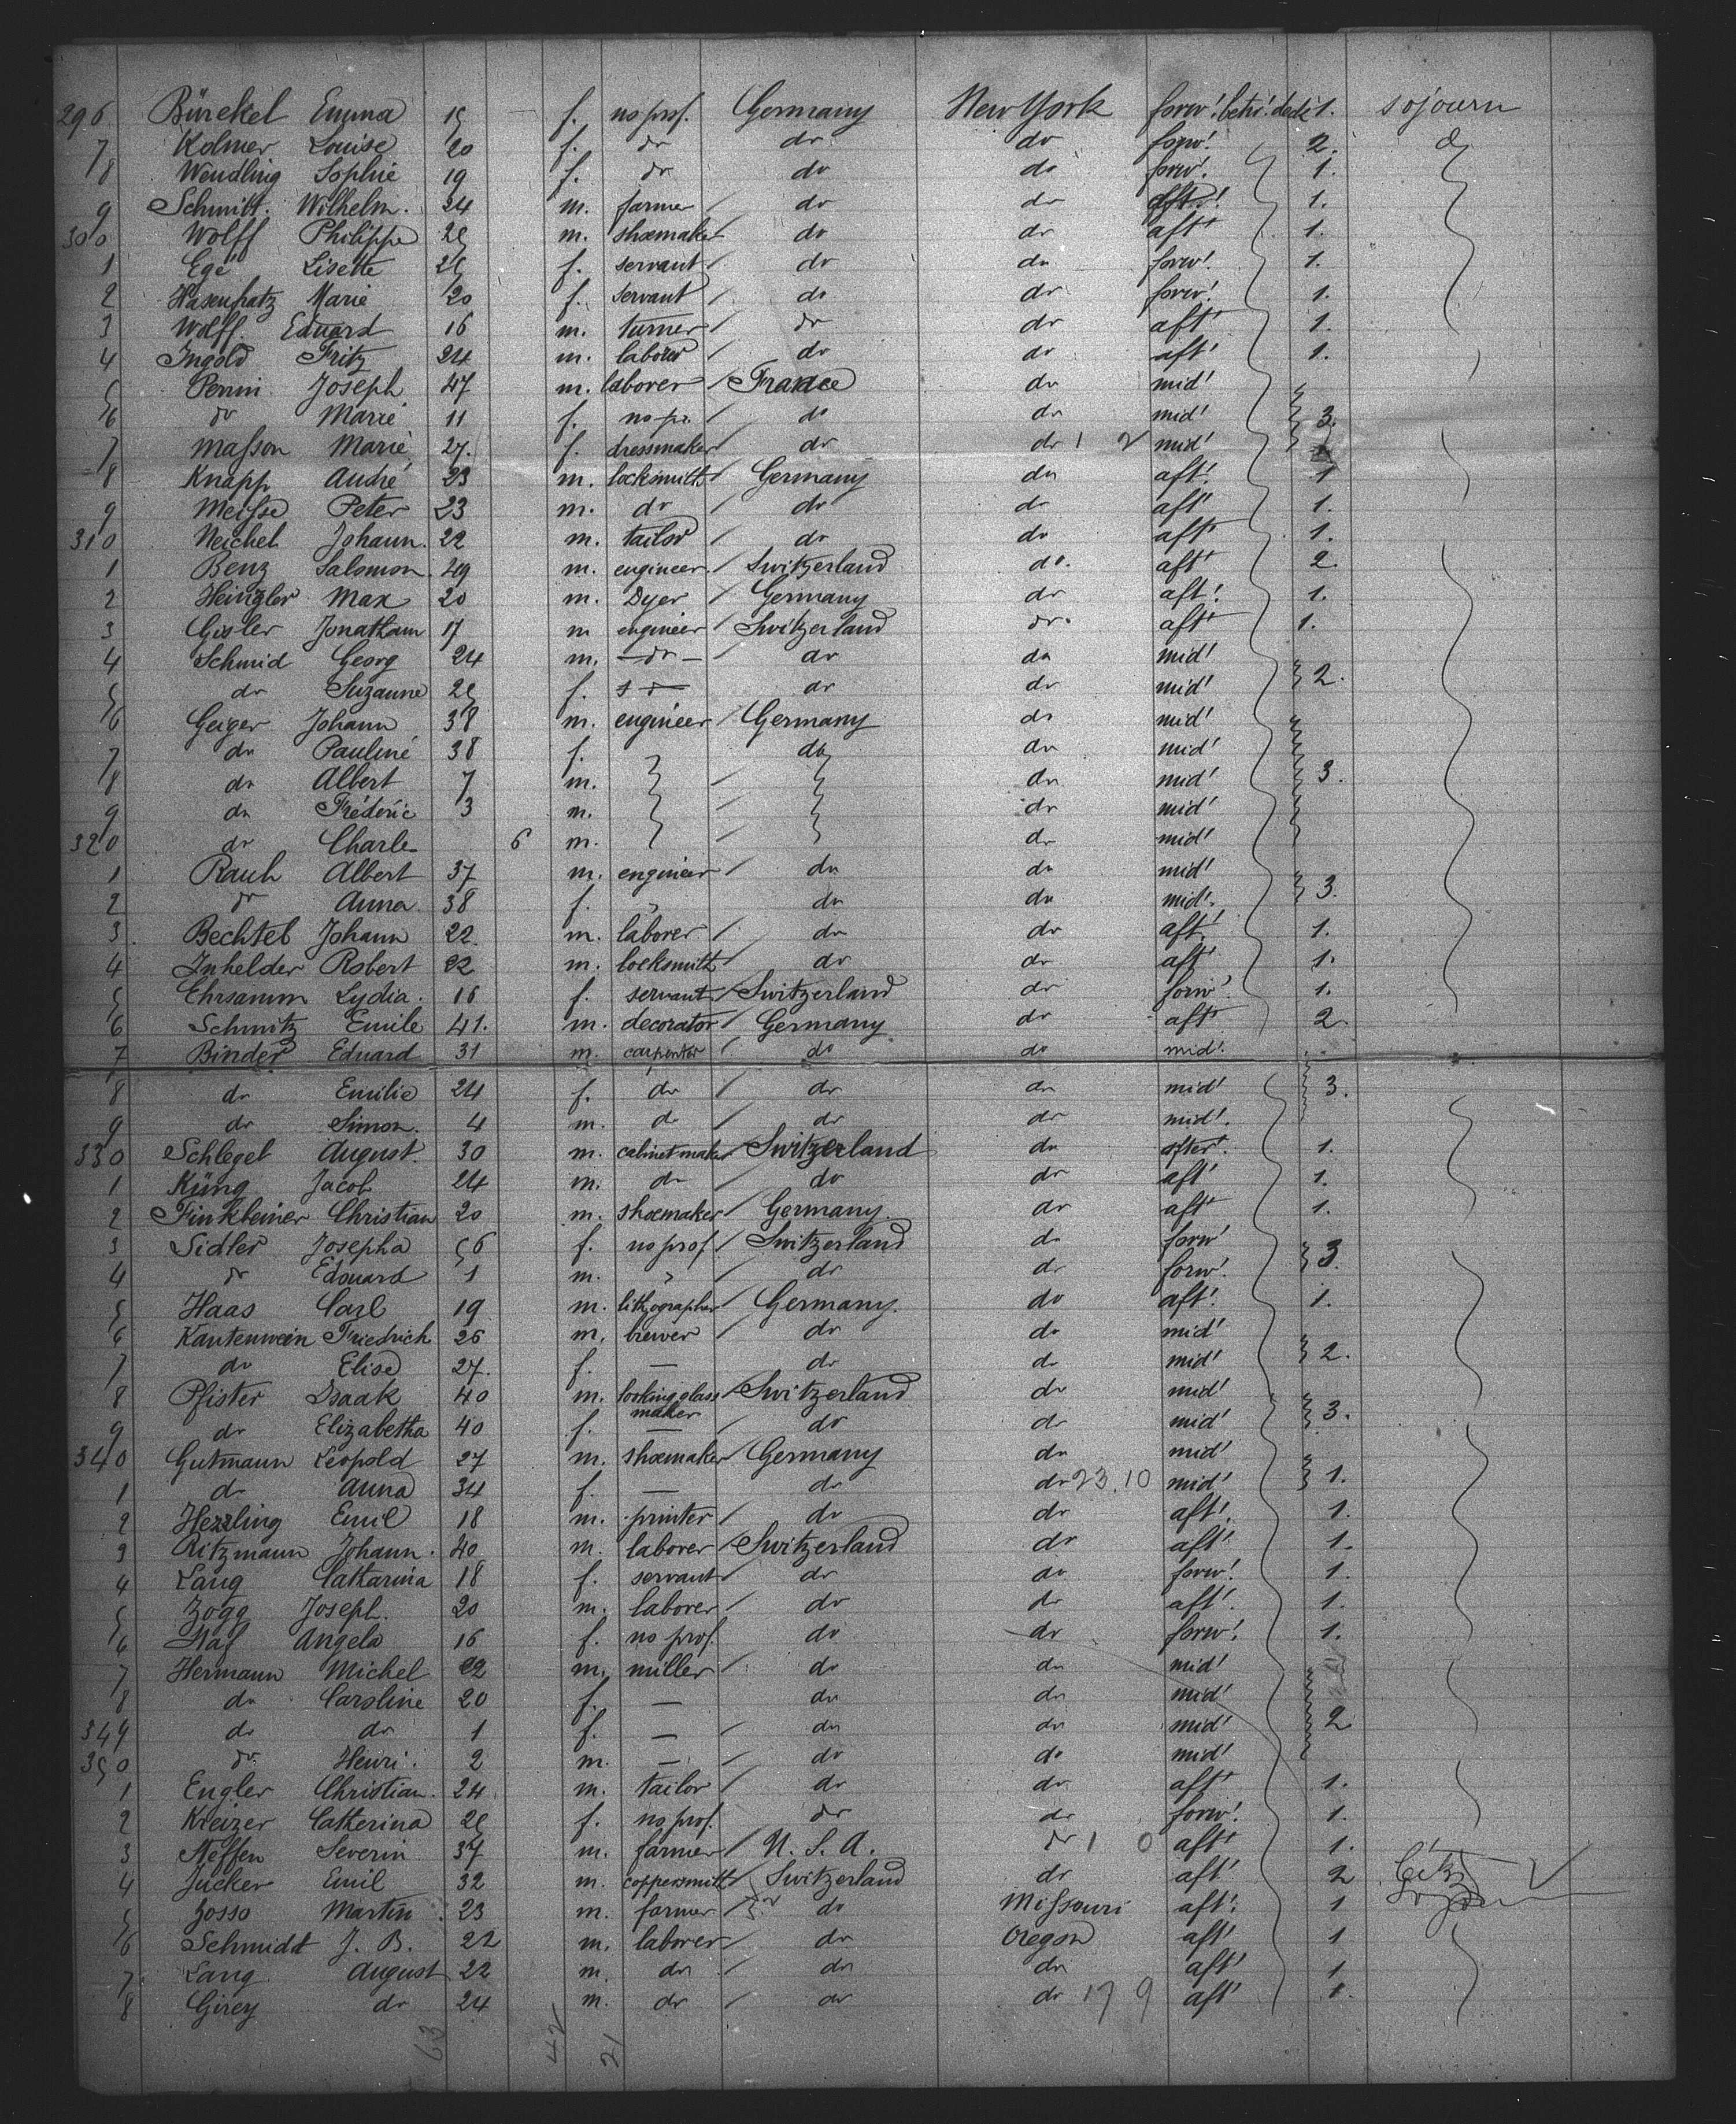 296 Bürckel Emma 15 f. no prof. Germany New York forw! betw! deck 1. sojourn
7 Kolmer Louise 20 f. do do do forw! 2. d
8 Wendling Sophie 19 f. do do do forw! 1.
9 Schmitt Wilhelm. 24 m. farmer / do do aft! 1.
300 Wolff Philippe 25 m. shoemaker do do aft! 1.
1 Egé Lisette 25 f. servant / do do forw! 1.
2 Hasenfratz Marie 20 f. servant / do do forw! 1.
3 Wolff Eduard 16 m. turner / do do aft! 1.
4 Ingold Fritz 24 m. laborer / do do aft! 1.
5 Perrin Joseph 47 m. laborer / France do mid!
6 do Marie 11 f. no pr. / do do mid! 3.
7 Masson Marie 27. f. dressmaker / do do 1 2 mid!
8 Knapp André 23 m. locksmith Germany do aft! 1
9 Meisse Peter 23 m. do / do do aft! 1.
310 Neichel Johann. 22 m. tailor / do do aft! 1.
1 Benz Salomon. 49 m. engineer. / Switzerland do. aft! 2.
2 Heinzler Max 20 m. Dyer / Germany do aft! 1.
3 Gisler Jonathan 17 m engineer / Switzerland do. aft! 1.
4 Schmid Georg 24 m. - do - do do mid!
5 do Suzanne 25 f. do do mid! 2.
6 Geiger Johann 38 m. engineer / Germany do mid!
7 do Pauline 38 f. do do mid!
8 do Albert 7 m. / do mid! 3.
9 do Fréderic 3 m. / do mid!
320 do Charle 6 m. / do mid!
1 Rauh Albert 37 m. engineer / do do mid!
2 do Anna 38 f. " do do mid! 3.
3. Bechtel Johann 22. m. laborer / do do aft! 1.
4 Inhelder Robert 22 m. locksmith do do aft! 1.
5 Ehrsamm Lydia. 16 f. servant / Switzerland do forw! 1.
6 Schmitz Emile 41. m. decorator / Germany do aft! 2.
7 Binder Eduard 31 m. carpenter / do do mid!
8 do Emilie 24 f. do / do do mid! 3.
9 do Simon. 4 m. do / do do mid!
330 Schlegel August. 30 m. cabinet maker Switzerland do after! 1.
1 Küng Jacob 24 m. do / do do aft! 1.
2 Finkbeiner Christian 20 m. shoemaker / Germany. do aft! 1.
3 Sidler Josepha 56 f. no prof. / Switzerland do forw!
4 do Edouard 1 m. " / do do forw! 3.
5 Haas Carl 19 m. lithographer / Germany. do aft! 1.
6 Kautenwein Friedrich 26 m. brewer / do do mid!
7 do Elise 27. f. — do do mid! 2.
8 Pfister Isaak 40 m. looking glass maker / Switzerland do mid!
9 do Elizabetha 40 f. — do do mid! 3.
340 Gutmann Leopold 27 m. shoemaker / Germany do mid!
1 do Anna 34 f. — do do 23.10 mid! 1.
2 Herrling Emil 18 m. printer / do do aft! 1.
3 Ritzmann Johann. 40 m. laborer / Switzerland do aft! 1.
4 Lang Catharina 18 f. servant / do do forw! 1.
5 Zogg Joseph. 20 m. laborer / do do aft! 1.
6 Näf Angela 16 f. no prof. do do forw! 1.
7 Hermann Michel 22 m. miller / do do mid!
8 do Caroline 20 f. — do do mid!
349 do do 1 f. — / do do mid! 2
350 do Henri. 2 m. — / do do mid!
1 Engler Christian. 24 m. tailor / do do aft! 1.
2 Kreizer Catherina 25 f. no prof. do do forw! 1.
3 Steffen Severin 37 m. farmer / U. S. A. do 1 0 aft! 1.
4 Jucker Emil 32 m. coppersmith / Switzerland do aft! 2 Citz
5 Zosso Martin 23 m. farmer / do Missouri aft! 1
6 Schmidt J. B. 22 m. laborer / do Oregon aft! 1
7 Lang August 22 m. do / do do aft! 1
8 Girey do 24 m. do / do do 17 9 aft! 1.
63 42 21